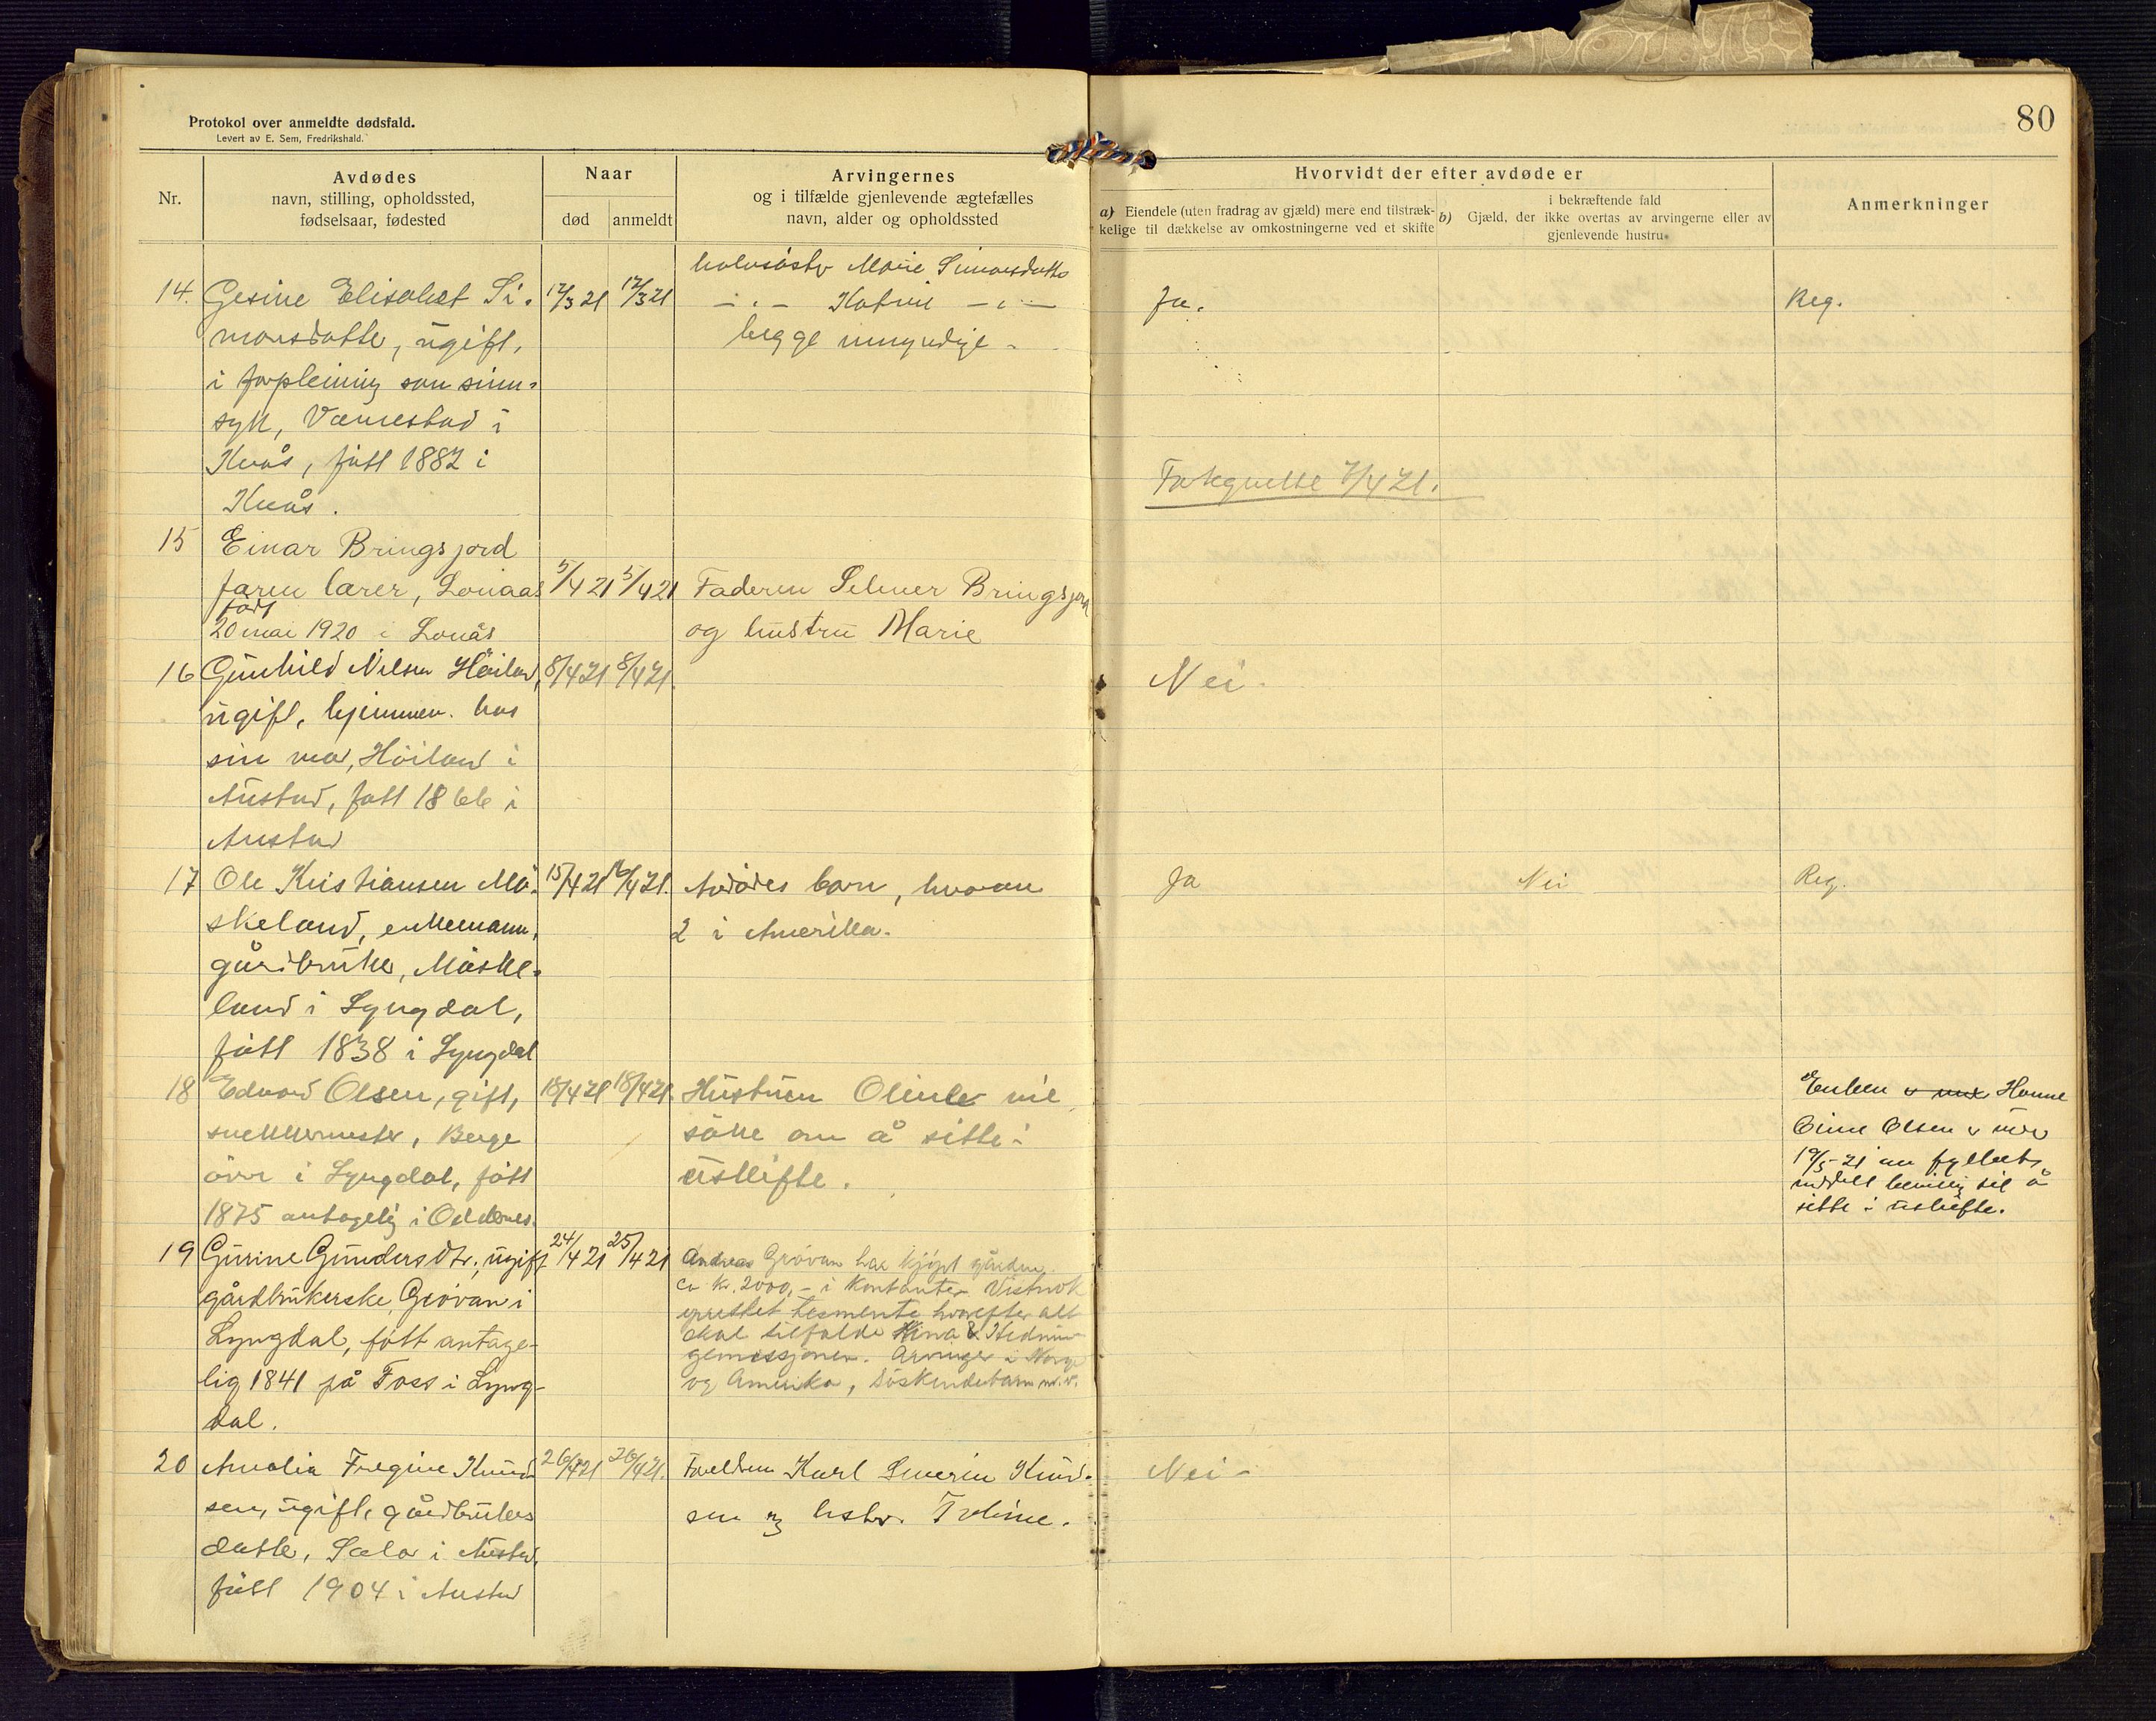 80
Protokol over anmeldte dødsfald.
Levert av E. Sem, Fredrikshald.
Nr.
Avdødes
navn, stilling, opholdssted,
fødselsaar, fødested
Naar
død
anmeldt
Arvingernes
og i tilfælde gjenlevende ægtefælles
navn, alder og opholdssted
Hvorvidt der efter avdøde er
a) Eiendele (uten fradrag av gjæld) mere end tilstræk-
kelige til dækkelse av omkostningerne ved et skifte
i bekræftende fald
b) Gjæld, der ikke overtas av arvingerne eller av
gjenlevende hustru.
Anmerkninger
halvsøster Marie Simonsdatter
14. Gesine Elisabet Si- 12/3 21 17/3 21 — " — Katrine — " — Ja. Reg.
monsdatter, ugift, begge umyndige.
i forpleining som sinn-
syk, Vemestad i
Kvås, født 1882 i
Kvås.
Forkynnelse 7/4 21.
15 Einar Bringsjord
faren lærer, Lonaas 5/4 21 5/4 21 Faderen Selmer Bringsjord
født
20 mai 1920 i Lonås og hustru Marie
16 Gunhild Nilsen Höiland, 8/4 21 8/4 21. Nei.
ugift, hjemmev. hos
sin mor, Höiland i
Austad, født 1866 i
Austad
17 Ole Kristiansen Mö- 15/4 21 16/4 21. Avdødes barn, hvorav Ja Nei Reg.
skeland, enkemann, 2 i Amerika.
gårdbruker, Möske-
land i Lyngdal,
født 1838 i Lyngdal
18 Edvard Olsen, gift, 18/4 21 18/4 21. Hustruen Oline vil
snekkermester, Berge søke om å sitte i
övre i Lyngdal, født uskifte.
1875 antagelig i Oddernes.
Enken Hanne
Oline Olsen er under
19/5-21 av fylket
meddelt bevilling til å
sitte i uskifte.
19 Gurine Gundersdtr., ugift 24/4 21 25/4 21 Andreas Grövan har kjöpt gården.
gårdbrukerske, Grövan i Ca kr. 2000,- i kontanter. Vistnok
Lyngdal, født antage- oprettet tesmente hvorefter alt
lig 1841 på Foss i Lyng- skal tilfalde Kina & Hednin-
dal. gemissjonen. Arvinger i Norge
og Amerika, Söskendebarn m.v.
20 Amalia Fregine Knud- 26/4 21 26/4 21. Foreldrene Karl Severin Knud- Nei -
sen, ugift, gårdbrukers sen og hustr. Toline.
datter, Sælø i Austad,
født 1904 i Austad